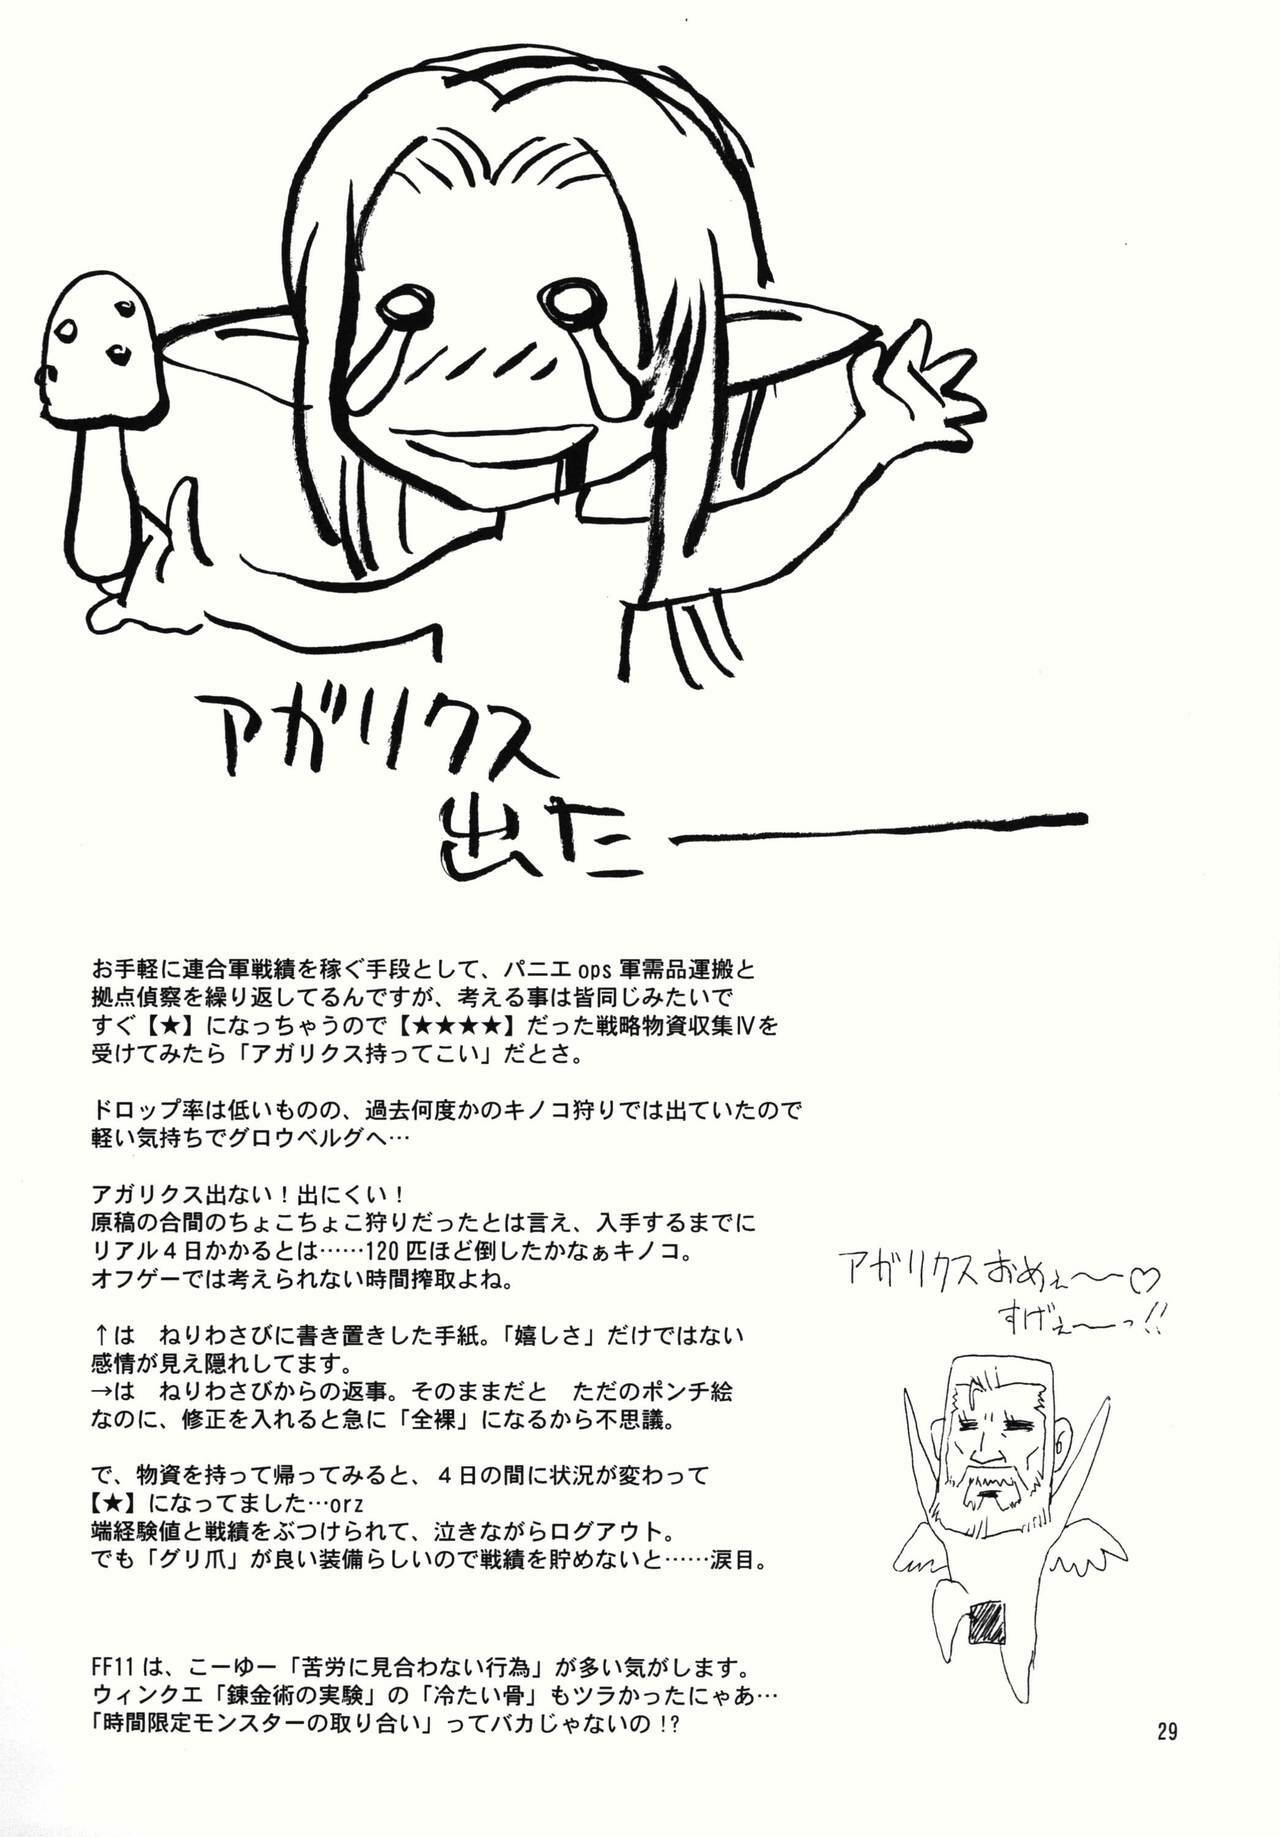 アガリクス
出たー
お手軽に連合軍戦績を稼ぐ手段として、パニエops軍需品運搬と
拠点偵察を繰り返してるんですが、考える事は皆同じみたいで
すぐ【★】になっちゃうので【★★★★】だった戦略物資収集Ⅳを
受けてみたら「アガリクス持ってこい」だとさ。
ドロップ率は低いものの、過去何度かのキノコ狩りでは出ていたので
軽い気持ちでグロウベルグへ…
アガリクス出ない！出にくい！
原稿の合間のちょこちょこ狩りだったとは言え、入手するまでに
リアル４日かかるとは……120匹ほど倒したかなぁキノコ。
オフゲーでは考えられない時間搾取よね。
↑は　ねりわさびに書き置きした手紙。「嬉しさ」だけではない
感情が見え隠れしてます。
→は　ねりわさびからの返事。そのままだと　ただのポンチ絵
なのに、修正を入れると急に「全裸」になるから不思議。
アガリクスおめぇ～～♡
すげぇ～～っ!!
で、物資を持って帰ってみると、４日の間に状況が変わって
【★】になってました…orz
端経験値と戦績をぶつけられて、泣きながらログアウト。
でも「グリ爪」が良い装備らしいので戦績を貯めないと……涙目。
FF11は、こーゆー「苦労に見合わない行為」が多い気がします。
ウィンクエ「錬金術の実験」の「冷たい骨」もツラかったにゃあ…
「時間限定モンスターの取り合い」ってバカじゃないの!?
29